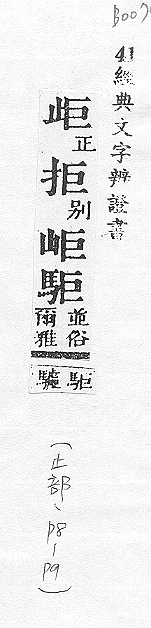 41經典文字辨證書
歫正拒别岠駏並俗爾雅
駏驉
(止部、P8-P9)